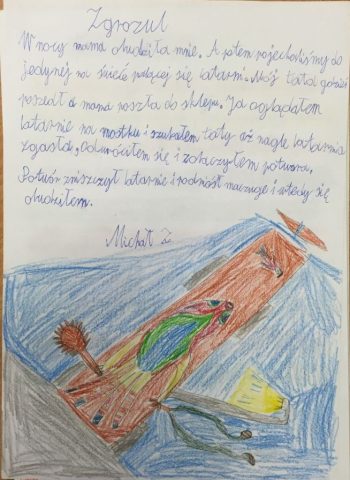 Zgrozul
W nocy mama obudziła mnie. A potem pojechaliśmy do
jedynej na świecie palącej się latarni. Mój tata gdzieś
poszedł a mama poszła do sklepu. Ja oglądałem
latarnie na mostku i szukałem taty aż nagle latarnia
zgasła. Odwróciłem się i zobaczyłem potwora.
Potwór zniszczył latarnie i podniósł maczugę i wtedy się
obudziłem.
Michał Z.